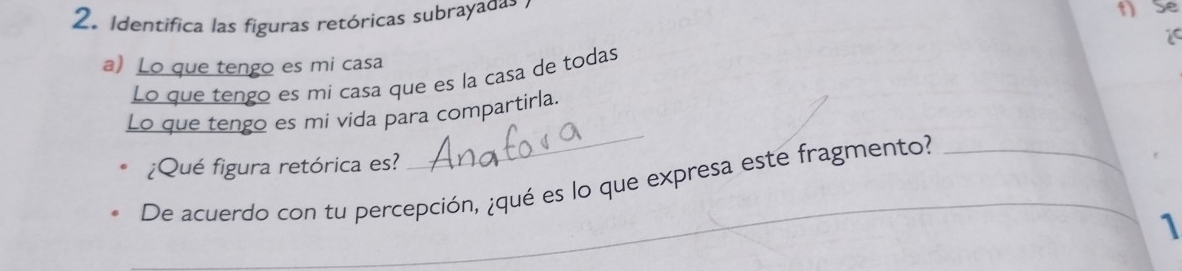 2. Identifica las figuras retóricas subrayadas
f) Se
a) Lo que tengo es mi casa
Lo que tengo es mi casa que es la casa de todas
Lo que tengo es mi vida para compartirla.
• ¿Qué figura retórica es? Anafora
• De acuerdo con tu percepción, ¿qué es lo que expresa este fragmento?
1